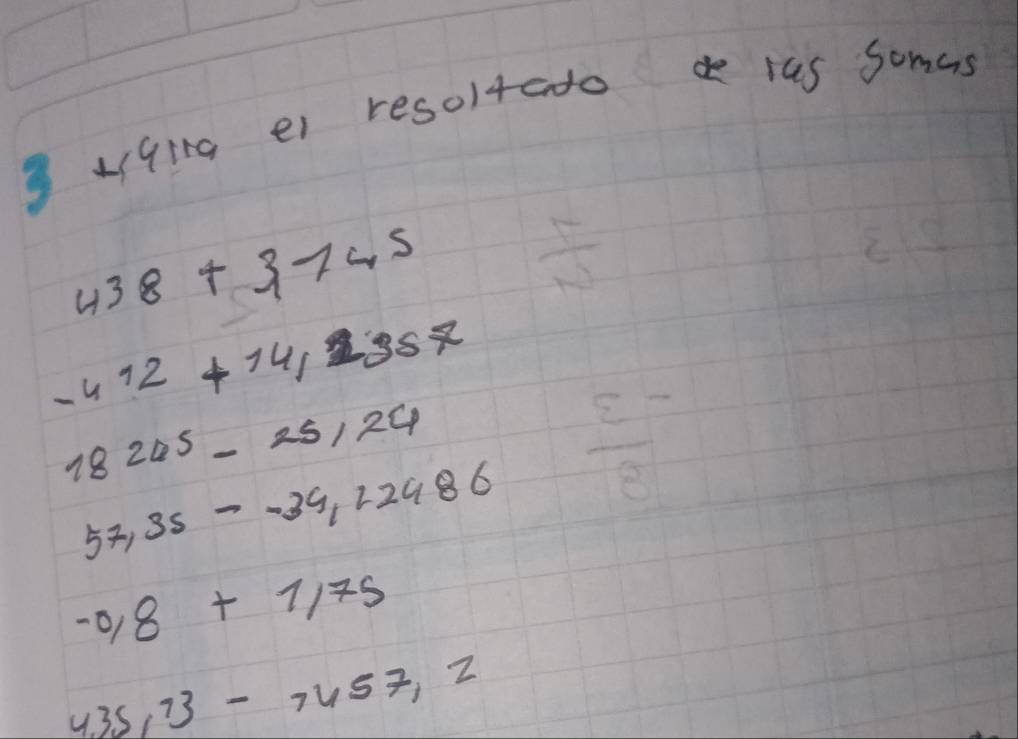 3 el resoltado de las somas
438 + 3,1415
-412 + 14, 2357
18245 - 25,24
57,35 - -34,22486
-0,8 + 1,75
435,13 - 1457,2